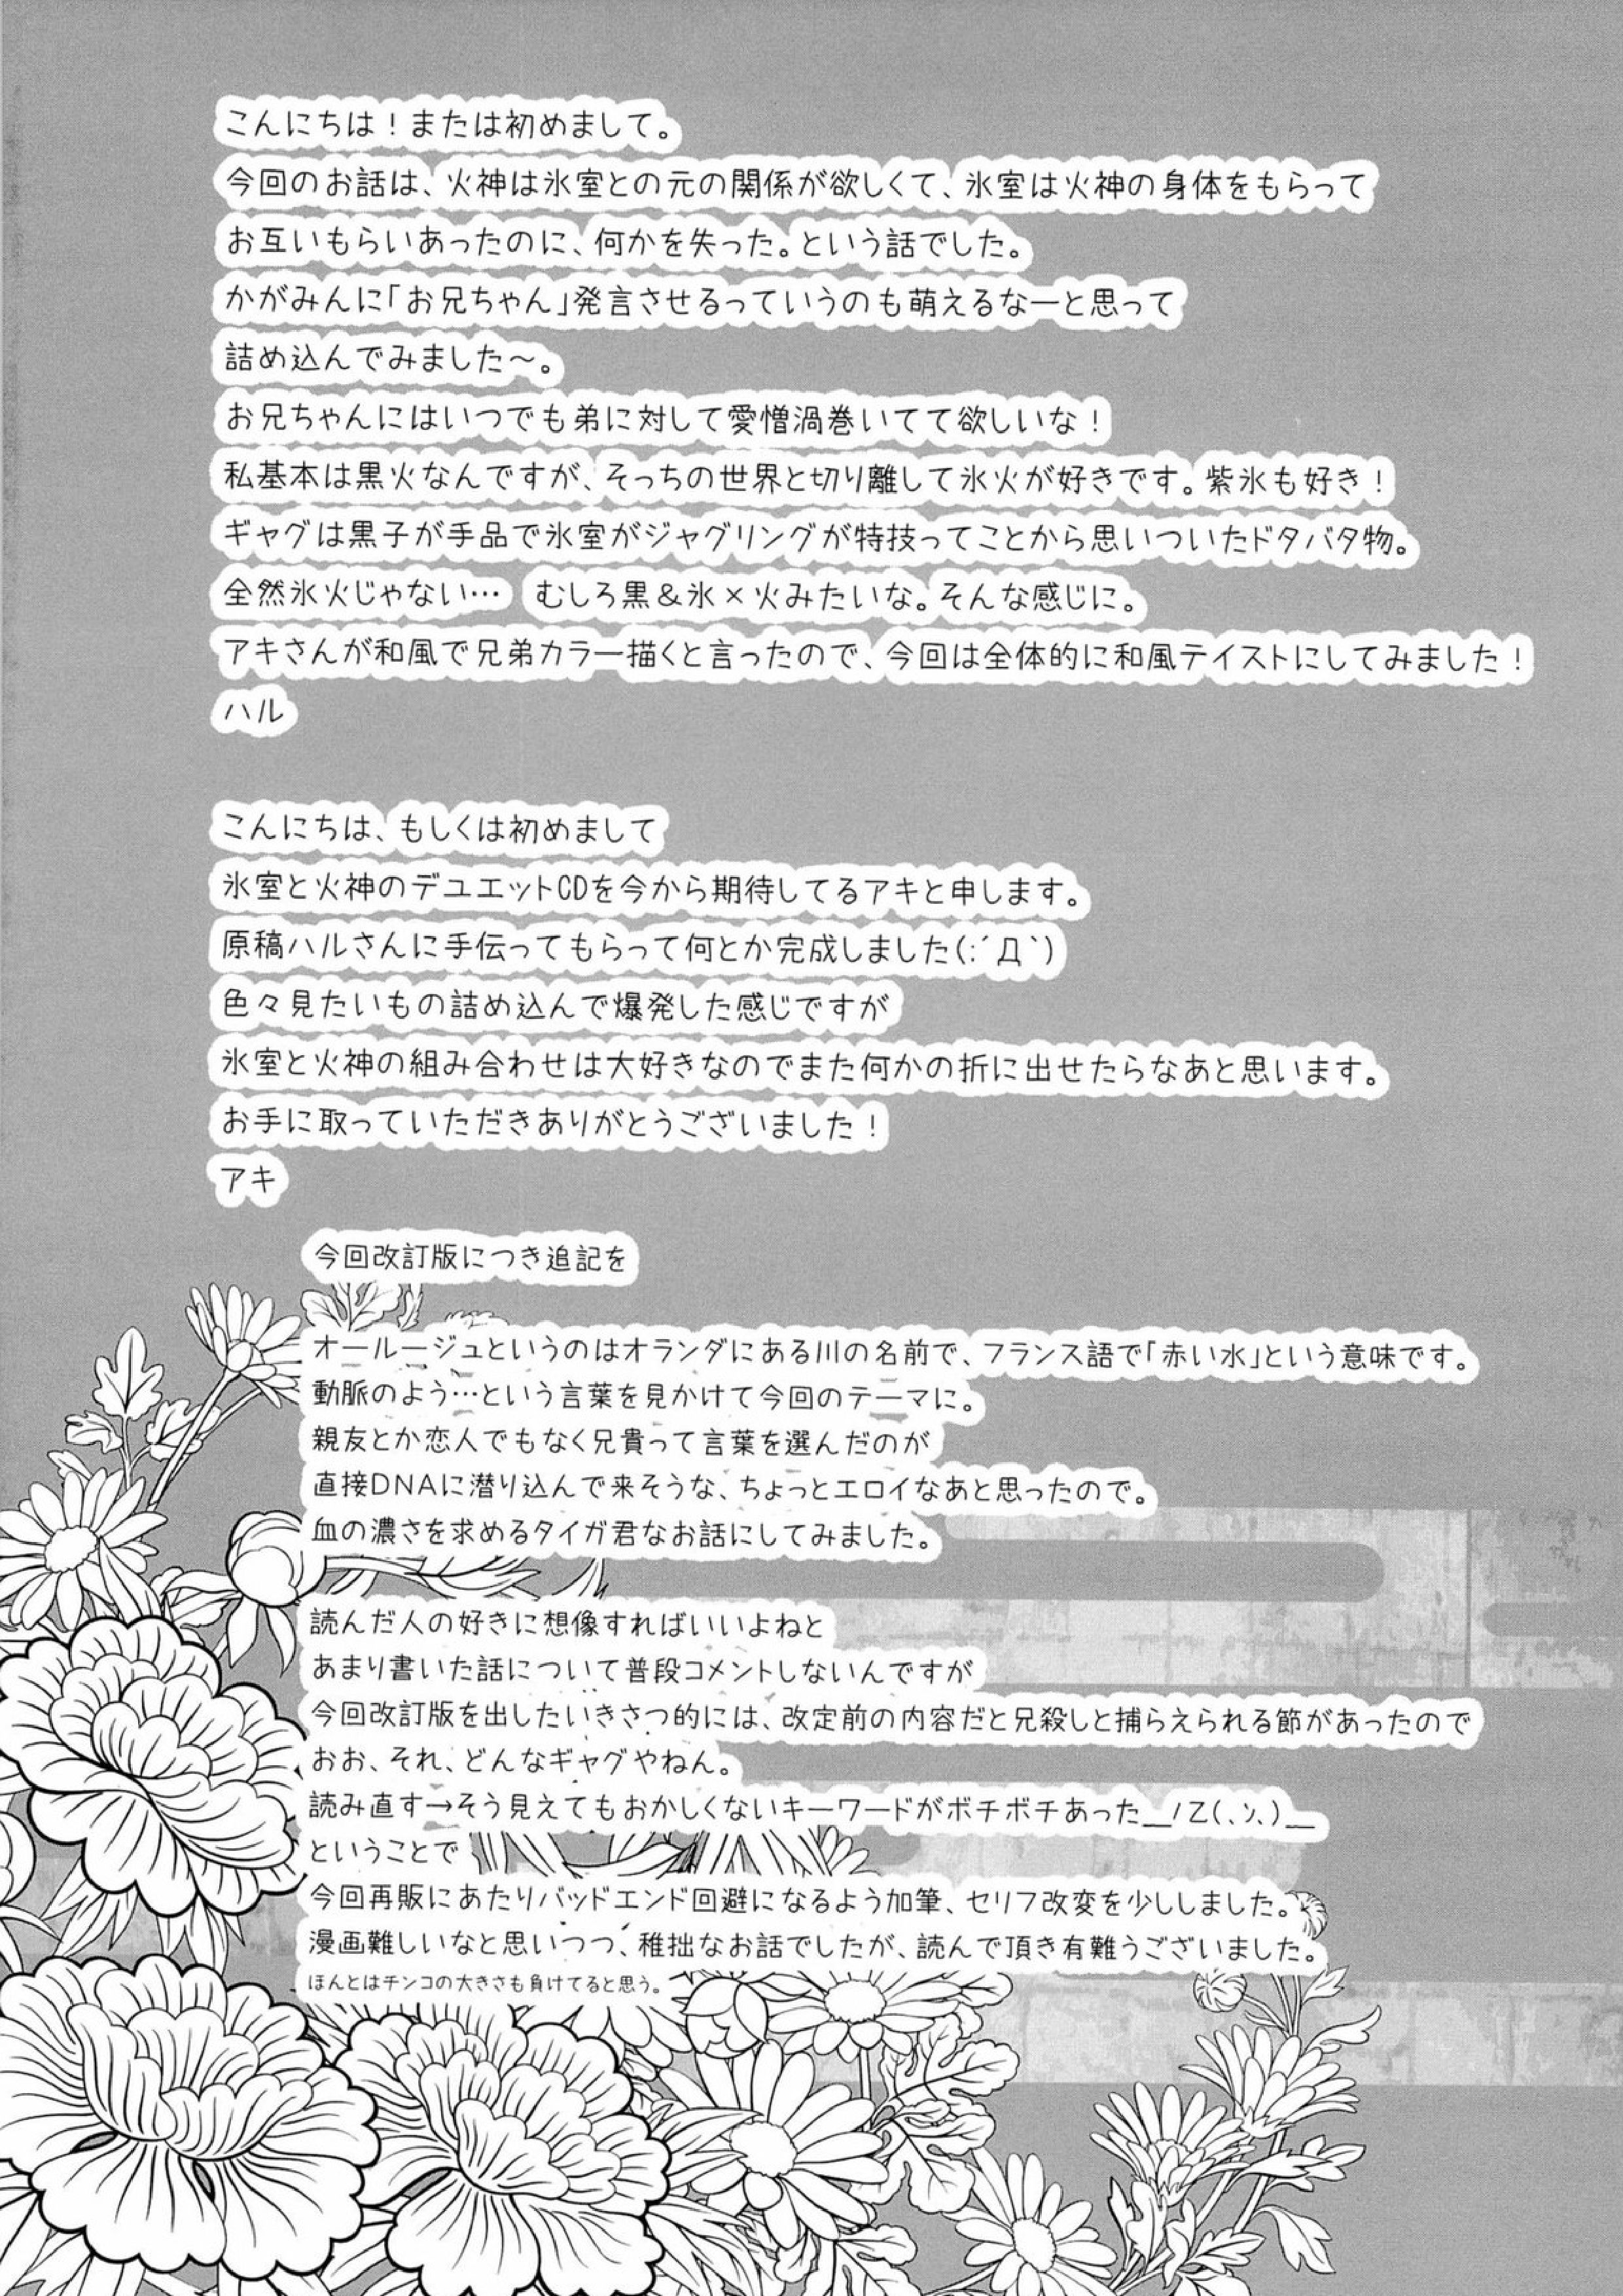 こんにちは！または初めまして。
今回のお話は、火神は氷室との元の関係が欲しくて、氷室は火神の身体をもらって
お互いもらいあったのに、何かを失った。という話でした。
かがみんに「お兄ちゃん」発言させるっていうのも萌えるなーと思って
詰め込んでみました～。
お兄ちゃんにはいつでも弟に対して愛憎渦巻いてて欲しいな！
私基本は黒火なんですが、そっちの世界と切り離して氷火が好きです。紫氷も好き！
ギャグは黒子が手品で氷室がジャグリングが特技ってことから思いついたドタバタ物。
全然氷火じゃない… むしろ黒＆氷×火みたいな。そんな感じに。
アキさんが和風で兄弟カラー描くと言ったので、今回は全体的に和風テイストにしてみました！
ハル
こんにちは、もしくは初めまして
氷室と火神のデユエットCDを今から期待してるアキと申します。
原稿ハルさんに手伝ってもらって何とか完成しました(;´Д`)
色々見たいもの詰め込んで爆発した感じですが
氷室と火神の組み合わせは大好きなのでまた何かの折に出せたらなあと思います。
お手に取っていただきありがとうございました！
アキ
今回改訂版につき追記を
オールージュというのはオランダにある川の名前で、フランス語で「赤い水」という意味です。
動脈のよう…という言葉を見かけて今回のテーマに。
親友とか恋人でもなく兄貴って言葉を選んだのが
直接DNAに潜り込んで来そうな、ちょっとエロイなあと思ったので。
血の濃さを求めるタイガ君なお話にしてみました。
読んだ人の好きに想像すればいいよねと
あまり書いた話について普段コメントしないんですが
今回改訂版を出したいきさつ的には、改定前の内容だと兄殺しと捕らえられる節があったので
おお、それ、どんなギャグやねん。
読み直す→そう見えてもおかしくないキーワードがボチボチあった＿ﾉ乙(､ﾝ､)＿
ということで
今回再販にあたりバッドエンド回避になるよう加筆、セリフ改変を少ししました。
漫画難しいなと思いつつ、稚拙なお話でしたが、読んで頂き有難うございました。
ほんとはチンコの大きさも負けてると思う。